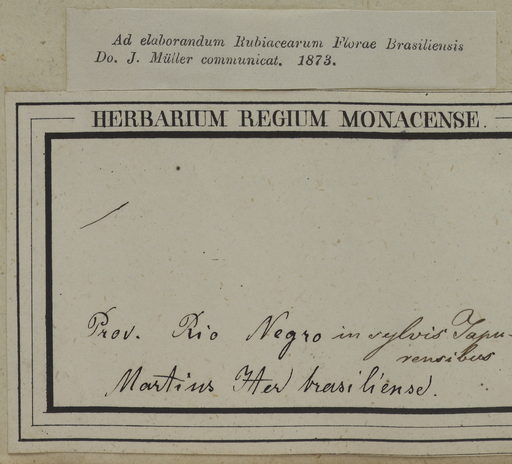 Ad elaborandum Rubiacearum Florae Brasiliensis
Do. J. Müller communicat. 1873.
HERBARIUM REGIUM MONACENSE.
Prov. Rio Negro in sylvis Japu-
rensibus
Martius Iter brasiliense.